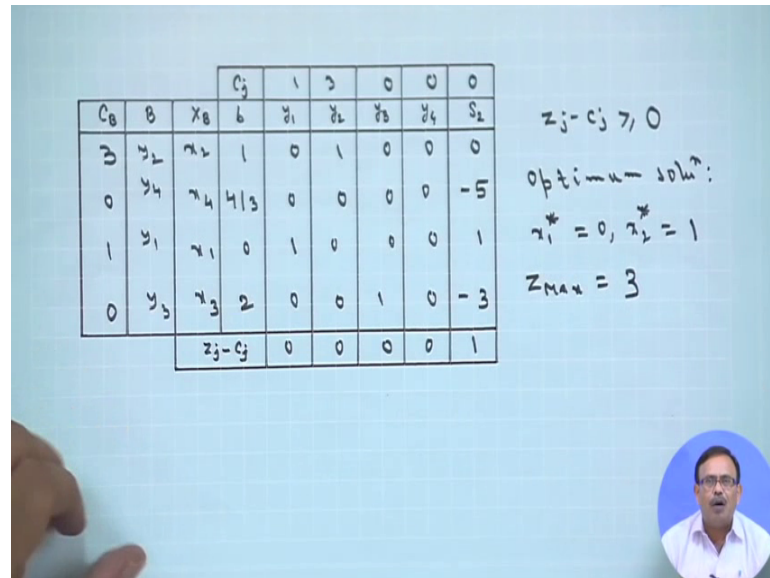 Cj 1 3 0 0 0
CB B XB b y1 y2 y3 y4 S2
3 y2 x2 1 0 1 0 0 0
0 y4 x4 4/3 0 0 0 0 -5
1 y1 x1 0 1 0 0 0 1
0 y3 x3 2 0 0 1 0 -3
zj-cj 0 0 0 0 1
zj-cj ≥ 0
optimum soluⁿ:
x1* = 0, x2* = 1
ZMax = 3